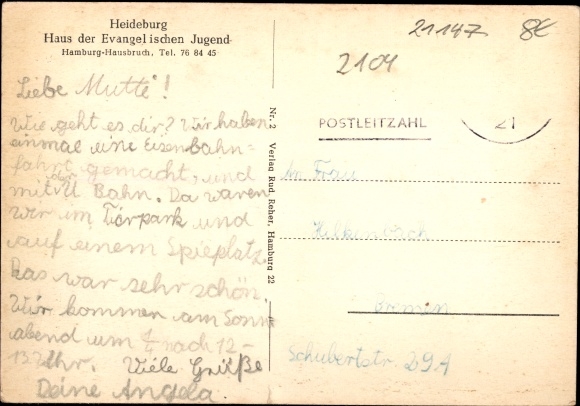 Heideburg
Haus der Evangelischen Jugend
Hamburg-Hausbruch, Tel. 76 84 45
21147 8€
2104
Liebe Mutti!
Wie geht es dir? Wir haben
einmal eine Eisenbahn=
fahrt gemacht, und
mit der U Bahn. Da waren
wir im Tierpark und
auf einem Spieplatz.
Das war sehr schön.
Wir kommen am Sonn
abend um nach 12-
13 Uhr. Viele Grüße
Deine Angela
Nr. 2 Verlag Rud. Reher, Hamburg 22
POSTLEITZAHL
21
An Frau
Hilkenbach
Bremen
Schubertstr. 29A